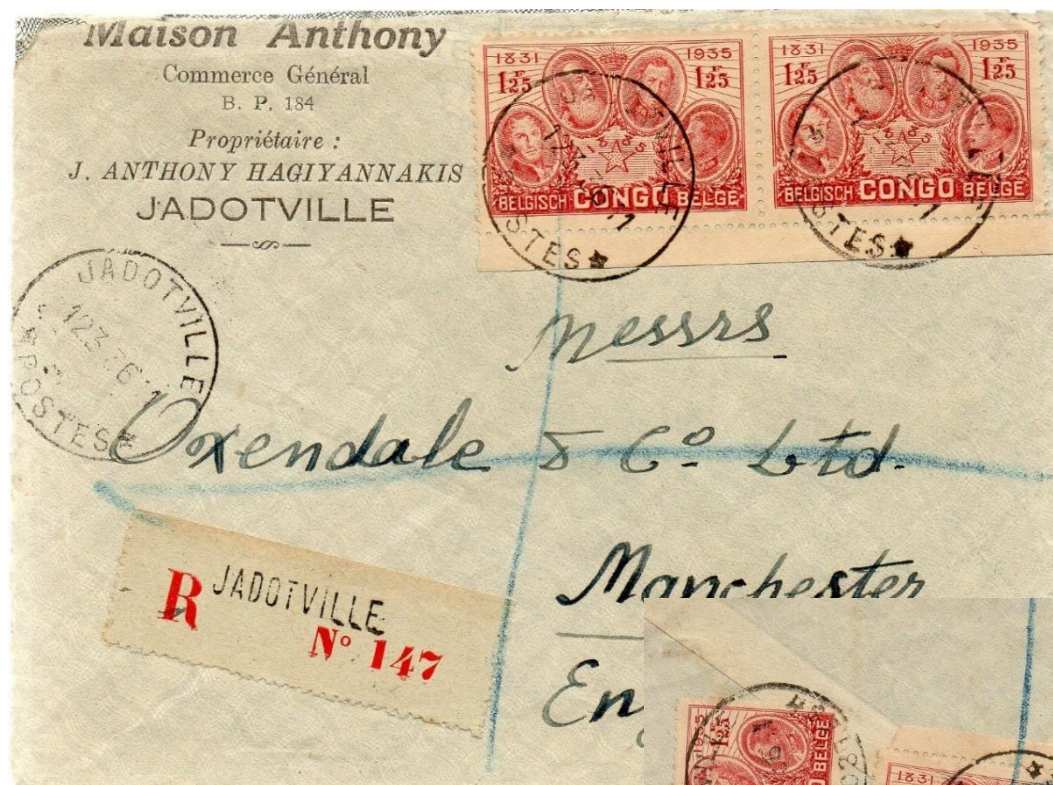 Maison Anthony
Commerce Général
B. P. 184
Propriétaire :
J. ANTHONY HAGIYANNAKIS
JADOTVILLE
1831 1935
1F25 1F25
1885
BELGISCH CONGO BELGE
1831 1935
1F25 1F25
1885
BELGISCH CONGO BELGE
JADOTVILLE
12.3.36
POSTES
Messrs
Oxendale & Co. Ltd.
Manchester
En
R JADOTVILLE
No 147
1935
1,25
BELGE
1831